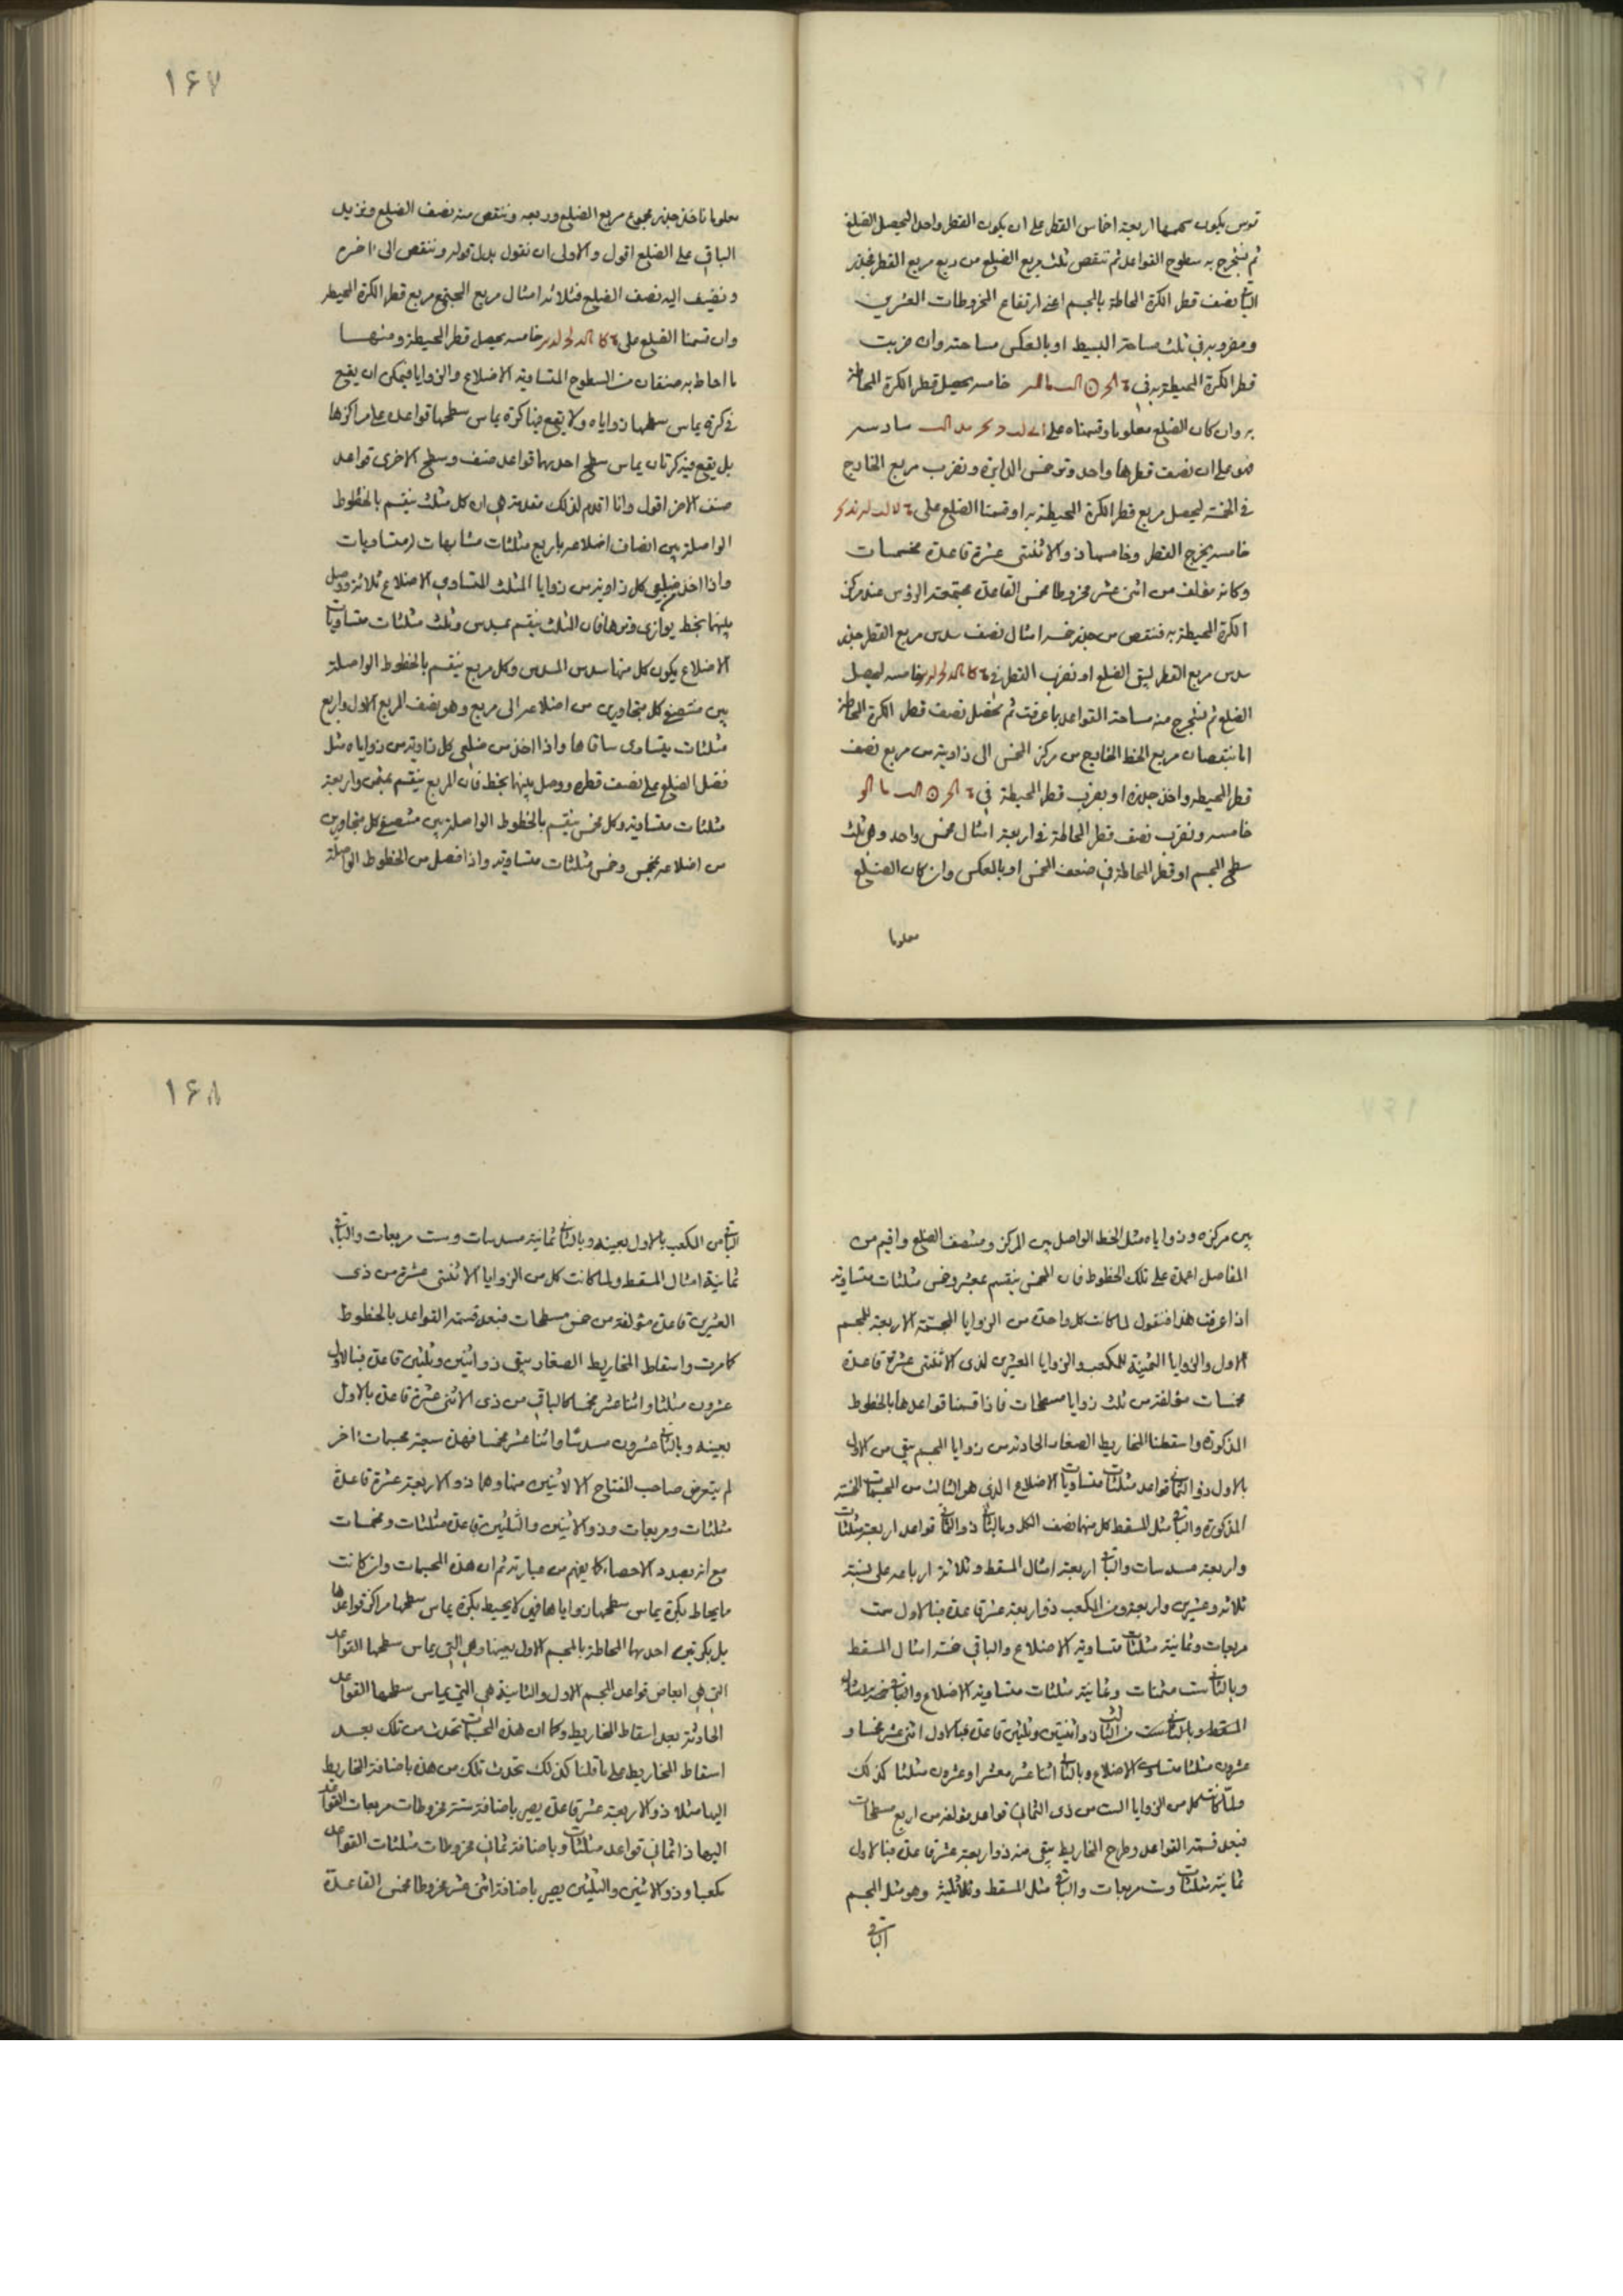 قوس يكون سهمها اربعة اخماس القطر على ان يكون القطر واحدا ليحصل الضلع
ثم نستخرج به سطوح القواعد ثم تنقص ثلث مربع الضلع من ربع مربع القطر فجذر
الباقي نصف قطر الكرة المحاطة بالمجسم اعني ارتفاع المخروطات العشرين
ومضروبه في ثلث مساحة البسيط او بالعكس مساحته وان ضربت
قطر الكرة المحيطة به في خامسه يحصل قطر الكرة المحاطة
به وان كان الضلع معلوما وقسمناه على سادسه
على ان نصف قطرها واحد وتر خمس الدايرة ونضرب مربع الخارج
في الخمسة ليحصل مربع قطر الكرة المحيطة به او قسمنا الضلع على
خامسه يخرج القطر وخامسها ذو الاثنتى عشرة قاعدة مخمسات
وكانه مؤلف من اثنى عشر مخروطا مخمس القاعدة مجتمعة الرؤس عند مركز
الكرة المحيطة به فننقص من جذر خمسة امثال نصف سدس مربع القطر جذر
سدس مربع القطر ليبقى الضلع او نضرب القطر في خامسه ليحصل
الضلع ثم نستخرج منه مساحة القواعد بما عرفت ثم نحصل نصف قطر الكرة المحاطة
اما بنقصان مربع الخط الخارج من مركز المخمس الى زاويته من مربع نصف
قطر المحيطة واخذ جذره او بضرب قطر المحيطة في
خامسه ونضرب نصف قطر المحاطة في اربعة امثال مخمس واحد وهي ثلث
سطح المجسم او قطر المحاطة في ضعف المخمس او بالعكس وان كان الضلع
معلوما
١۶٧
معلوما ناخذ جذر مجموع مربع الضلع وربعه وننقص منه نصف الضلع ونزيد
الباقي على الضلع اقول والاولى ان نقول بدل قوله وننقص الى اخره
ونضيف اليه نصف الضلع فثلاثة امثال مربع المجتمع مربع قطر الكرة المحيطة
وان قسمنا الضلع على خامسه يحصل قطر المحيطة ومنها
ما احاط به صنفان من السطوح المتساوية الاضلاع والزوايا فيمكن ان يقع
في كرة يماس سطحها زواياه ولا يقع فيه كرة يماس سطحها قواعده على مراكزها
بل يقع فيه كرتان يماس سطح احديهما قواعد صنف وسطح الاخرى قواعد
صنف الاخر اقول وانا اقدم لذلك مقدمة هي ان كل مثلث ينقسم بالخطوط
الواصلة بين انصاف اضلاعه باربع مثلثات متشابهات متساويات
واذا اخذ من ضلعي كل زاوية من زوايا المثلث المتساوي الاضلاع ثلاثة ووصل
بينهما بخط يوازي وترها فان المثلث ينقسم بمسدس وثلث مثلثات متساويات
الاضلاع يكون كل منها سدس المسدس وكل مربع ينقسم بالخطوط الواصلة
بين منتصفي كل متجاورين من اضلاعه الى مربع وهو نصف المربع الاول واربع
مثلثات يتساوى ساقاها واذا اخذ من ضلعي كل زاوية من زواياه مثل
فضل الضلع على نصف قطره ووصل بينهما بخط فان المربع ينقسم بمثمن واربعة
مثلثات متساوية وكل مخمس ينقسم بالخطوط الواصلة بين منتصفي كل متجاورين
من اضلاعه بمخمس وخمس مثلثات متساوية واذا فصل من الخطوط الواصلة
بين مركزه وزواياه مثل الخط الواصل بين المركز ومنتصف الضلع واقيم من
المفاصل اعمدة على تلك الخطوط فان المخمس ينقسم بمعشر وخمس مثلثات متساوية
اذا عرفت هذا فنقول لما كانت كل واحدة من الزوايا المجسمة الاربعة للمجسم
الاول والزوايا الثمنية للمكعب والزوايا العشرين لذى الاثنتى عشرة قاعدة
مخمسات مؤلفة من ثلث زوايا مسطحات فاذا قسمنا قواعدها بالخطوط
المذكورة واسقطنا المخاريط الصغار الحادثة من زوايا المجسم يبقى من الاول
بالاول ذو الثماني قواعد مثلثات متساويات الاضلاع الذي هو الثالث من المجسمات الخمسة
المذكورة والباقي مثل المسقط كل منهما نصف الكل وبالثاني ذو الثماني قواعد اربعة مثلثات
واربعة مسدسات والباقي اربعة امثال المسقط وثلاثة ارباعه على نسبة
ثلاثة وعشرين واربعة ومن المكعب ذو اربعة عشر قاعدة فبالاول ست
مربعات وثمانية مثلثات متساوية الاضلاع والباقي خمسة امثال المسقط
وبالثاني ست مثمنات وثمانية مثلثات متساوية الاضلاع والباقي
المسقط ومن الثالث ذو اثنتين وثلثين قاعدة فبالاول اثنى عشر مخمسا و
عشرون مثلثا متساوى الاضلاع وبالثاني اثنا عشر معشرا وعشرون مثلثا كذلك
ولما كانت كل من الزوايا الست من ذى الثماني قواعد مؤلفة من اربع مسطحات
فبعد قسمة القواعد وطرح المخاريط يبقى منه ذو اربعة عشر قاعدة فبالاول
ثمانية مثلثات وست مربعات والباقي مثل المسقط وثلاثليه وهو مثل المجسم
الباقي
١۶٨
الباقي من المكعب بالاول بعينه وبالثاني ثمانية مسدسات وست مربعات والباقي
ثمانية امثال المسقط ولما كانت كل من الزوايا الاثنتى عشرة من ذى
العشرين قاعدة مؤلفة من خمس مسطحات فبعد قسمة القواعد بالخطوط
كما مرت واسقاط المخاريط الصغار يبقى ذو اثنتين وثلثين قاعدة فبالاول
عشرون مثلثا واثنا عشر مخمسا كالباقي من ذى الاثنتى عشرة قاعدة بالاول
بعينه وبالثاني عشرون مسدسا واثنا عشر مخمسا فهذه سبعة مجسمات اخر
لم يتعرض صاحب المفتاح الا لاثنين منها وهما ذو الاربعة عشرة قاعدة
مثلثات ومربعات وذو الاثنين والثلثين قاعدة مثلثات ومخمسات
مع انه بصدد الاحصاء كما يفهم من عبارته ثم ان هذه المجسمات وان كانت
مما يحاط بكرة يماس سطحها زواياها فهي لا يحيط بكرة يماس سطحها مراكز قواعدها
بل بكرتين احديهما المحاطة بالمجسم الاول بعينها وهي التي يماس سطحها القواعد
التي هي ابعاض قواعد المجسم الاول والثانية هي التي يماس سطحها القواعد
الحادثة بعد اسقاط المخاريط وكما ان هذه المجسمات تحدث من تلك بعد
اسقاط المخاريط على ما قلنا كذلك تحدث تلك من هذه باضافة المخاريط
اليها مثلا ذو الاربعة عشر قاعدة يصير باضافة ستة مخروطات مربعات القواعد
اليها ذا ثماني قواعد مثلثات وباضافة ثماني مخروطات مثلثات القواعد
مكعبا وذو الاثنين والثلثين يصير باضافة اثنى عشر مخروطا مخمس القاعدة